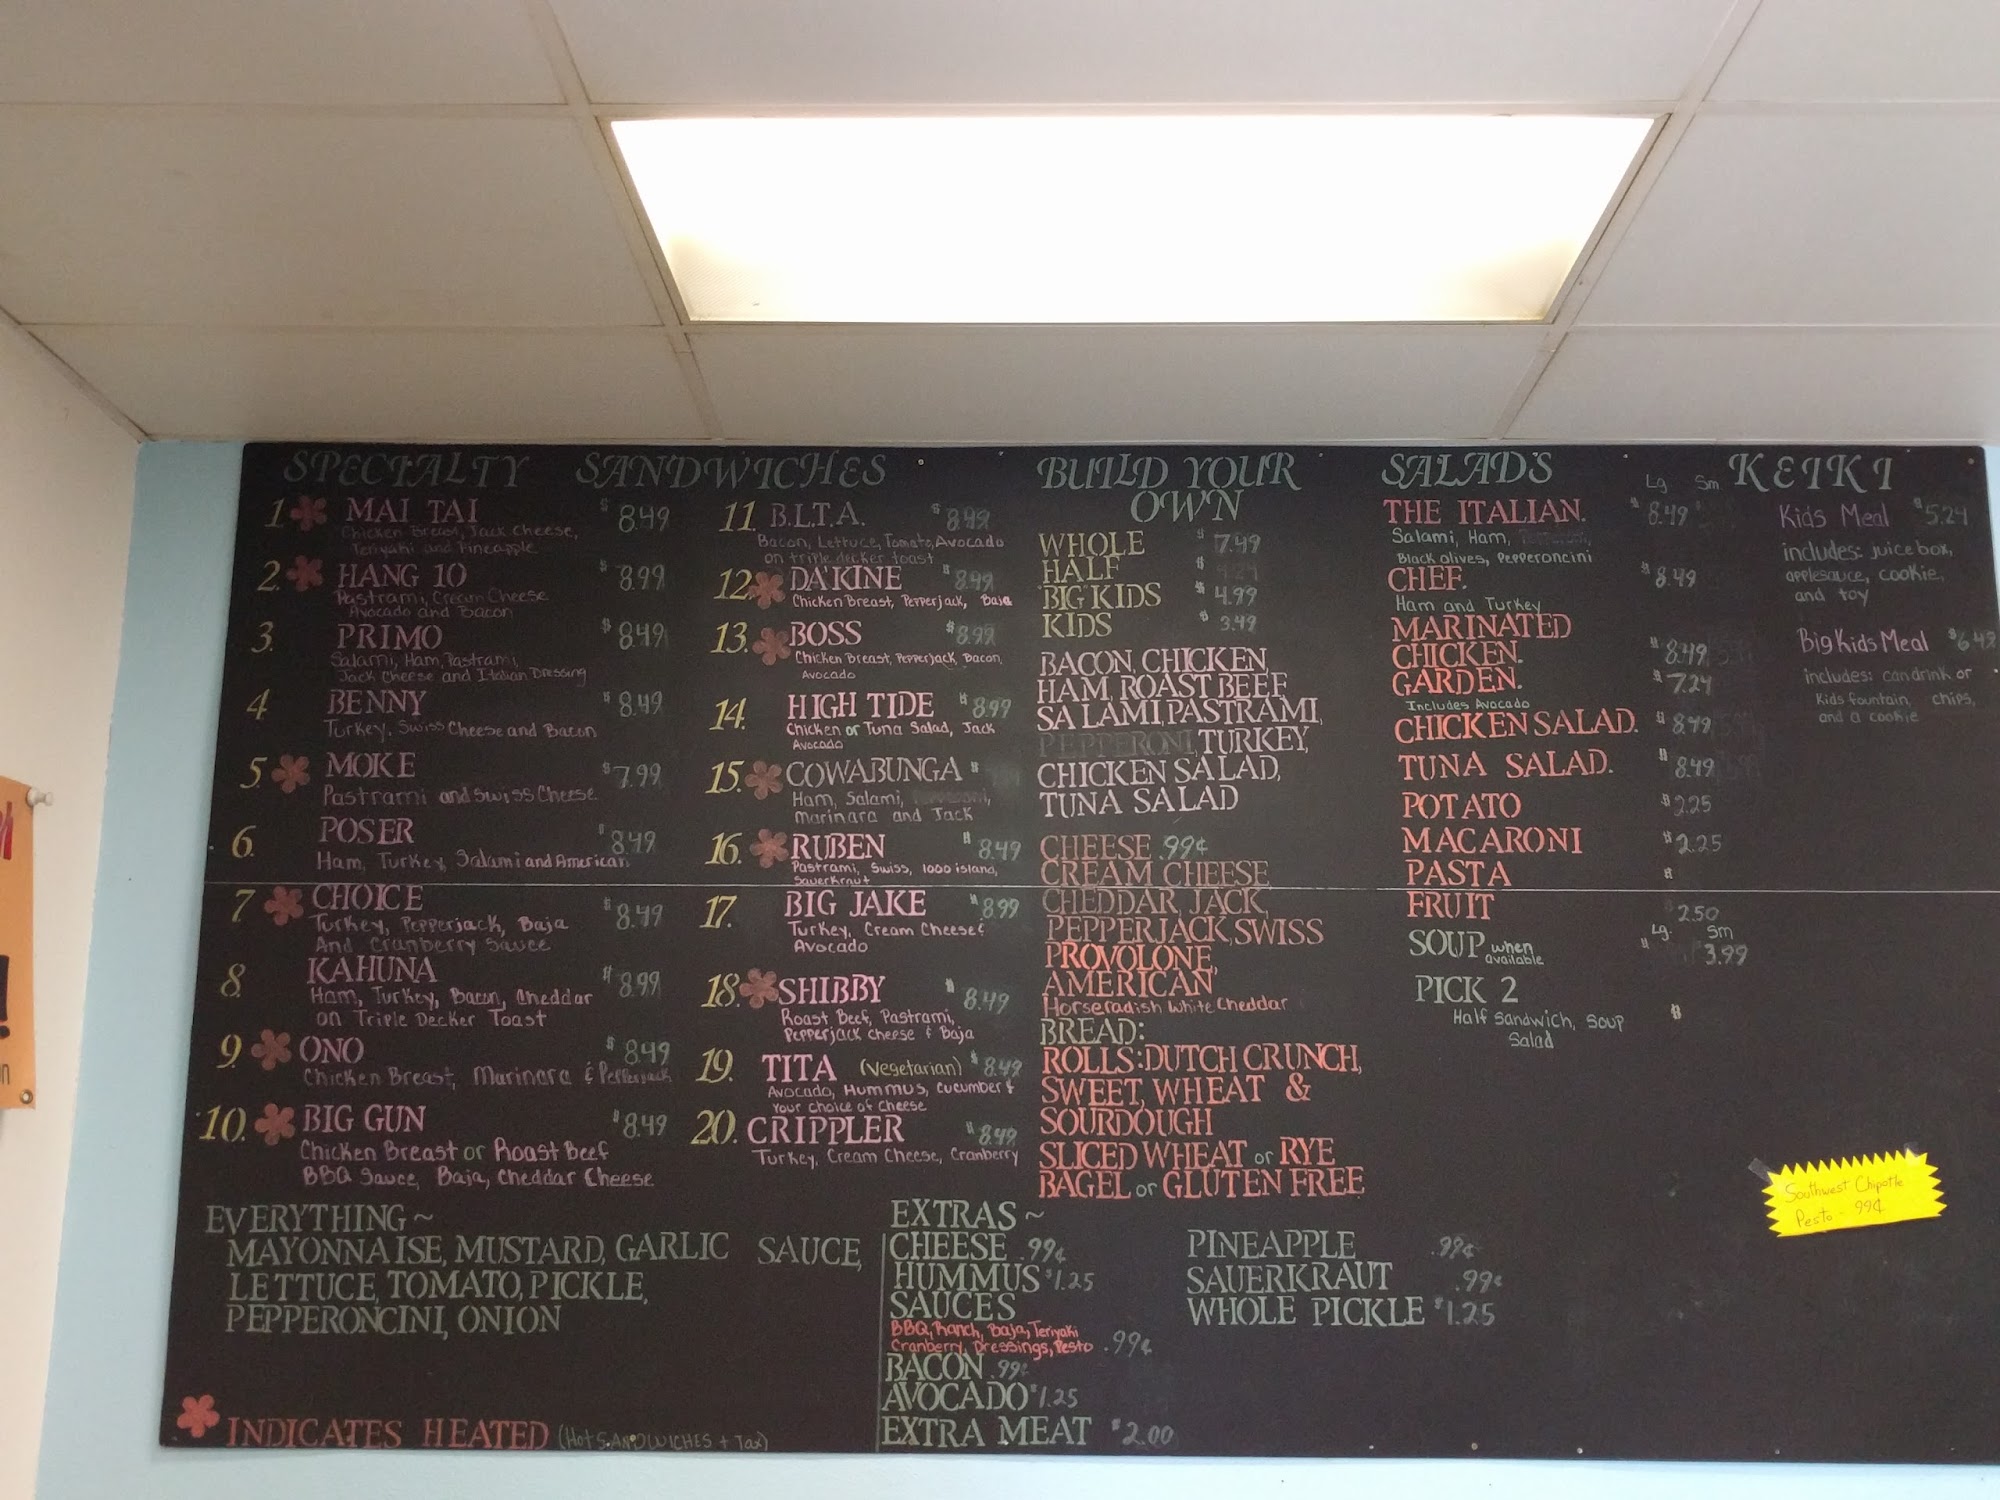 SPECIALTY SANDWICHES
1 MAI TAI $8.49
Chicken Bread, Jack Cheese,
Teriyaki and Pineapple
2. HANG 10 $8.99
Pastrami, Cream Cheese
Avocado and Bacon
3. PRIMO $8.49
Salami, Ham, Pastrami,
Jack Cheese and Italian Dressing
4 BENNY $8.49
Turkey, Swiss Cheese and Bacon
5 MOKE $7.99
Pastrami and Swiss Cheese
6. POSER $8.49
Ham, Turkey, Salami and American
7 CHOICE $8.49
Turkey, Pepperjack, Baja
And Cranberry Sauce
8 KAHUNA $8.99
Ham, Turkey, Bacon, Cheddar
on Triple Decker Toast
9. ONO $8.49
Chicken Breast, Marinara & Pepperjack
10. BIG GUN $8.49
Chicken Breast or Roast Beef
BBQ Sauce, Baja, Cheddar Cheese
11 B.L.T.A. $8.99
Bacon, Lettuce, Tomato, Avocado
on triple decker toast
12. DA'KINE $8.49
Chicken Breast, Pepperjack, Baja
13. BOSS $8.99
Chicken Breast, Pepperjack, Bacon,
Avocado
14. HIGH TIDE $8.99
Chicken or Tuna Salad, Jack
Avocado
15. COWABUNGA $
Ham, Salami,
Marinara and Jack
16. RUBEN $8.49
Pastrami, Swiss, 1000 island,
Sauerkraut
17. BIG JAKE $8.99
Turkey, Cream Cheese &
Avocado
18. SHIBBY $8.49
Roast Beef, Pastrami,
Pepperjack cheese & Baja
19. TITA (Vegetarian) $8.49
Avocado, Hummus, cucumber &
Your choice of Cheese
20. CRIPPLER $8.49
Turkey, Cream Cheese, Cranberry
BUILD YOUR
OWN
WHOLE $7.49
HALF $
BIG KIDS $4.99
KIDS $3.49
BACON, CHICKEN,
HAM, ROAST BEEF,
SALAMI, PASTRAMI,
PEPPERONI, TURKEY,
CHICKEN SALAD,
TUNA SALAD
CHEESE .99¢
CREAM CHEESE
CHEDDAR, JACK,
PEPPERJACK, SWISS
PROVOLONE,
AMERICAN
Horseradish White Cheddar
BREAD:
ROLLS: DUTCH CRUNCH,
SWEET, WHEAT &
SOURDOUGH
SLICED WHEAT or RYE
BAGEL or GLUTEN FREE
SALADS Lg Sm
THE ITALIAN. $8.49
Salami, Ham,
Black olives, Pepperoncini
CHEF. $8.49
Ham and Turkey
MARINATED
CHICKEN. $8.49
GARDEN. $7.24
Includes Avocado
CHICKEN SALAD. $8.49
TUNA SALAD. $8.49
POTATO $2.25
MACARONI $2.25
PASTA $
FRUIT 2.50
Lg. Sm
SOUP when available $ 3.99
PICK 2
Half Sandwich, Soup $
Salad
KEIKI
Kids Meal $5.24
includes: juice box,
applesauce, cookie,
and toy
Big Kids Meal $6.49
includes: can drink or
Kids fountain, chips,
and a cookie
Southwest Chipotle
Pesto - 99¢
EVERYTHING ~
MAYONNAISE, MUSTARD, GARLIC SAUCE,
LETTUCE, TOMATO, PICKLE,
PEPPERONCINI, ONION
INDICATES HEATED (Hot SANDWICHES + Tax)
EXTRAS ~
CHEESE .99¢
HUMMUS $1.25
SAUCES
BBQ, Ranch, Baja, Teriyaki
Cranberry, Dressings, Pesto .99¢
BACON .99¢
AVOCADO $1.25
EXTRA MEAT $2.00
PINEAPPLE .99¢
SAUERKRAUT .99¢
WHOLE PICKLE $1.25